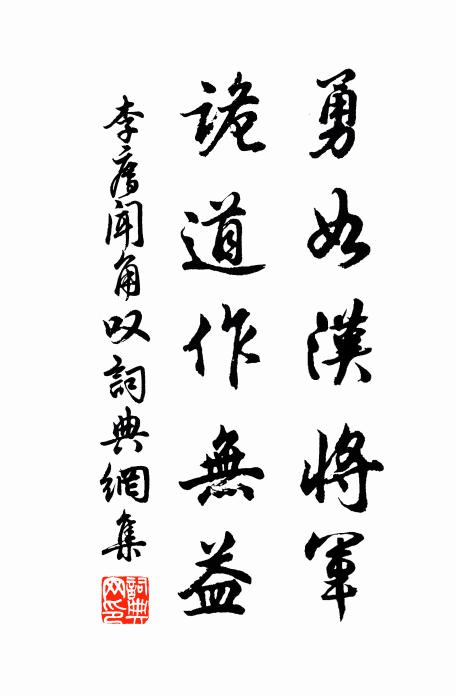 勇如漢將軍
詭道作無益
李廌聞角叹詞典網集
詞典网印